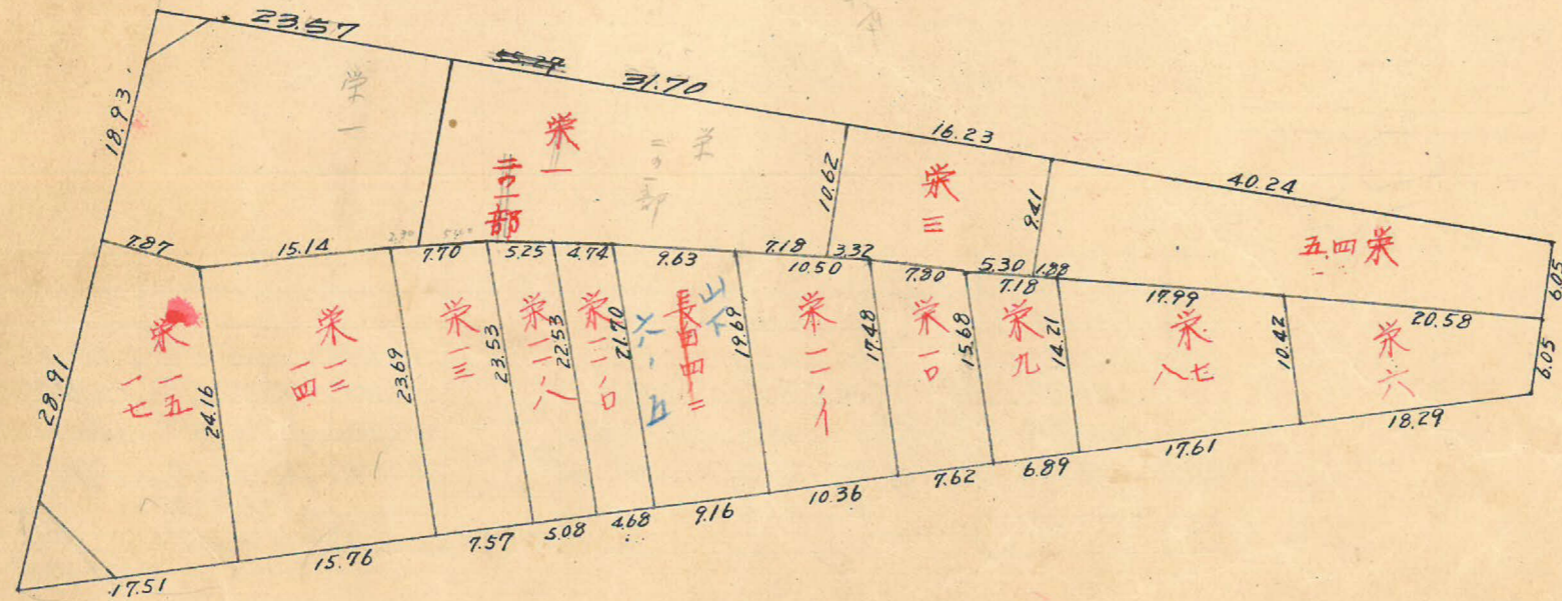 23.57
31.70
16.23
40.24
18.93
栄一
栄一
二ノ一部
栄
二ノ一部
10.62
栄三
9.41
栄四五
6.05
7.87
15.14
7.70
5.25
4.74
9.63
7.18
3.32
10.50
7.80
5.30
1.88
7.18
17.99
20.58
6.05
28.91
栄一五
一七
24.16
栄一二
一四
23.69
栄一三
23.53
栄一一ノ八
22.53
栄一一ロ
21.70
山下
六ノ五
19.69
栄一一ノイ
17.48
栄一〇
15.68
栄九
14.21
栄七
八
10.42
栄六
17.51
15.76
7.57
5.08
4.68
9.16
10.36
7.62
6.89
17.61
18.29